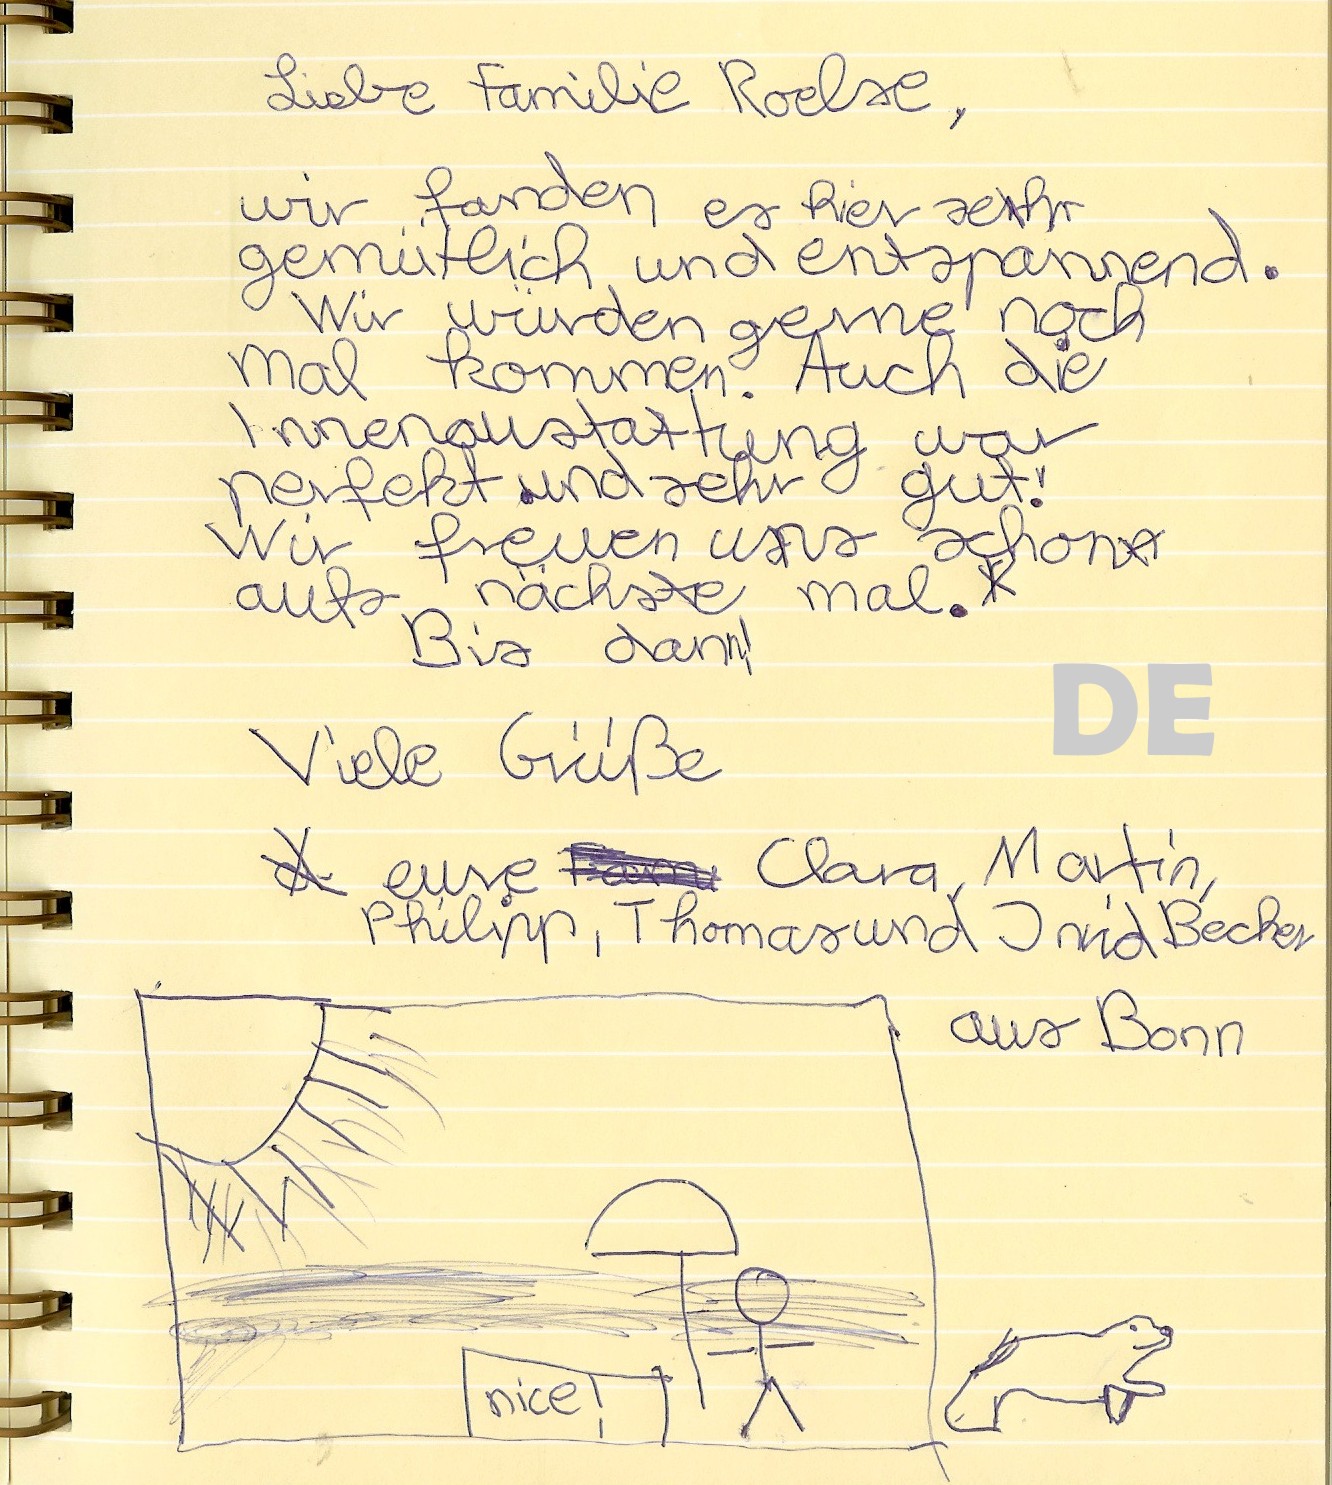 Liebe Familie Roelse,
wir fanden es hier sehr
gemütlich und entspannend.
Wir würden gerne noch
mal kommen. Auch die
Innenaustattung war
perfekt und sehr gut!
Wir freuen uns schon
aufs nächste mal.*
Bis dann!
DE
Viele Grüße
eure Clara, Martin,
Philipp, Thomas und Becker
aus Bonn
nice!